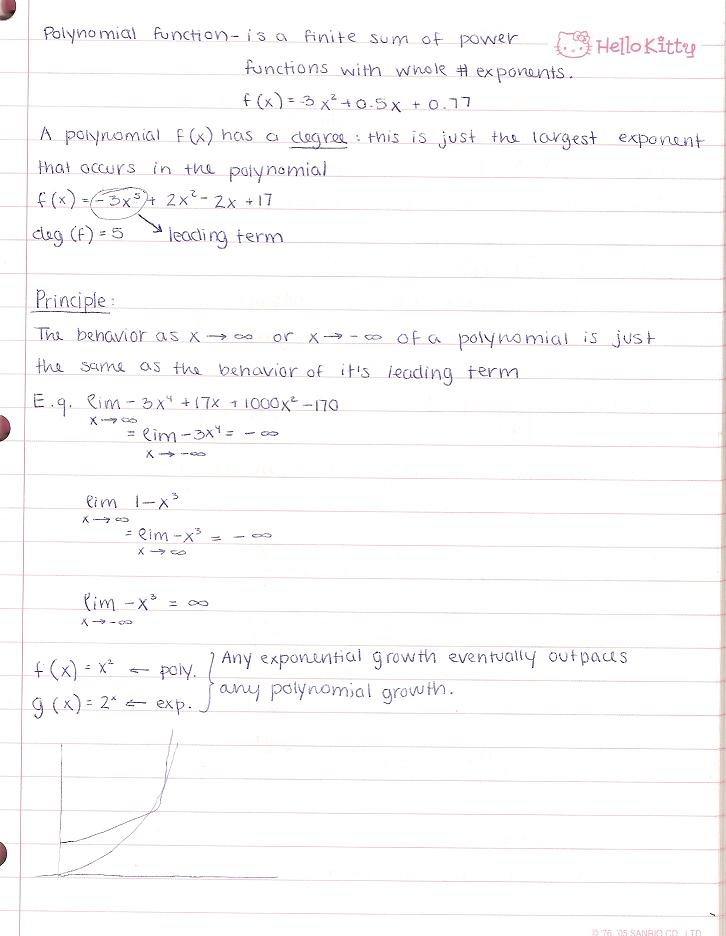 Polynomial function - is a finite sum of power
Hello Kitty
functions with whole # exponents.
f(x) = 3x² + 0.5x + 0.77
A polynomial f(x) has a degree: this is just the largest exponent
that occurs in the polynomial
f(x) = -3x⁵ + 2x² - 2x + 17
deg (f) = 5 → leading term
Principle:
The behavior as x → ∞ or x → -∞ of a polynomial is just
the same as the behavior of it's leading term
E.g. lim -3x⁴ + 17x + 1000x² - 170
x → ∞
= lim -3x⁴ = -∞
x → -∞
lim 1 - x³
x → ∞
= lim -x³ = -∞
x → ∞
lim -x³ = ∞
x → -∞
f(x) = x² ← poly. } Any exponential growth eventually outpaces
g(x) = 2ˣ ← exp. } any polynomial growth.
© '76, '05 SANRIO CO., LTD.